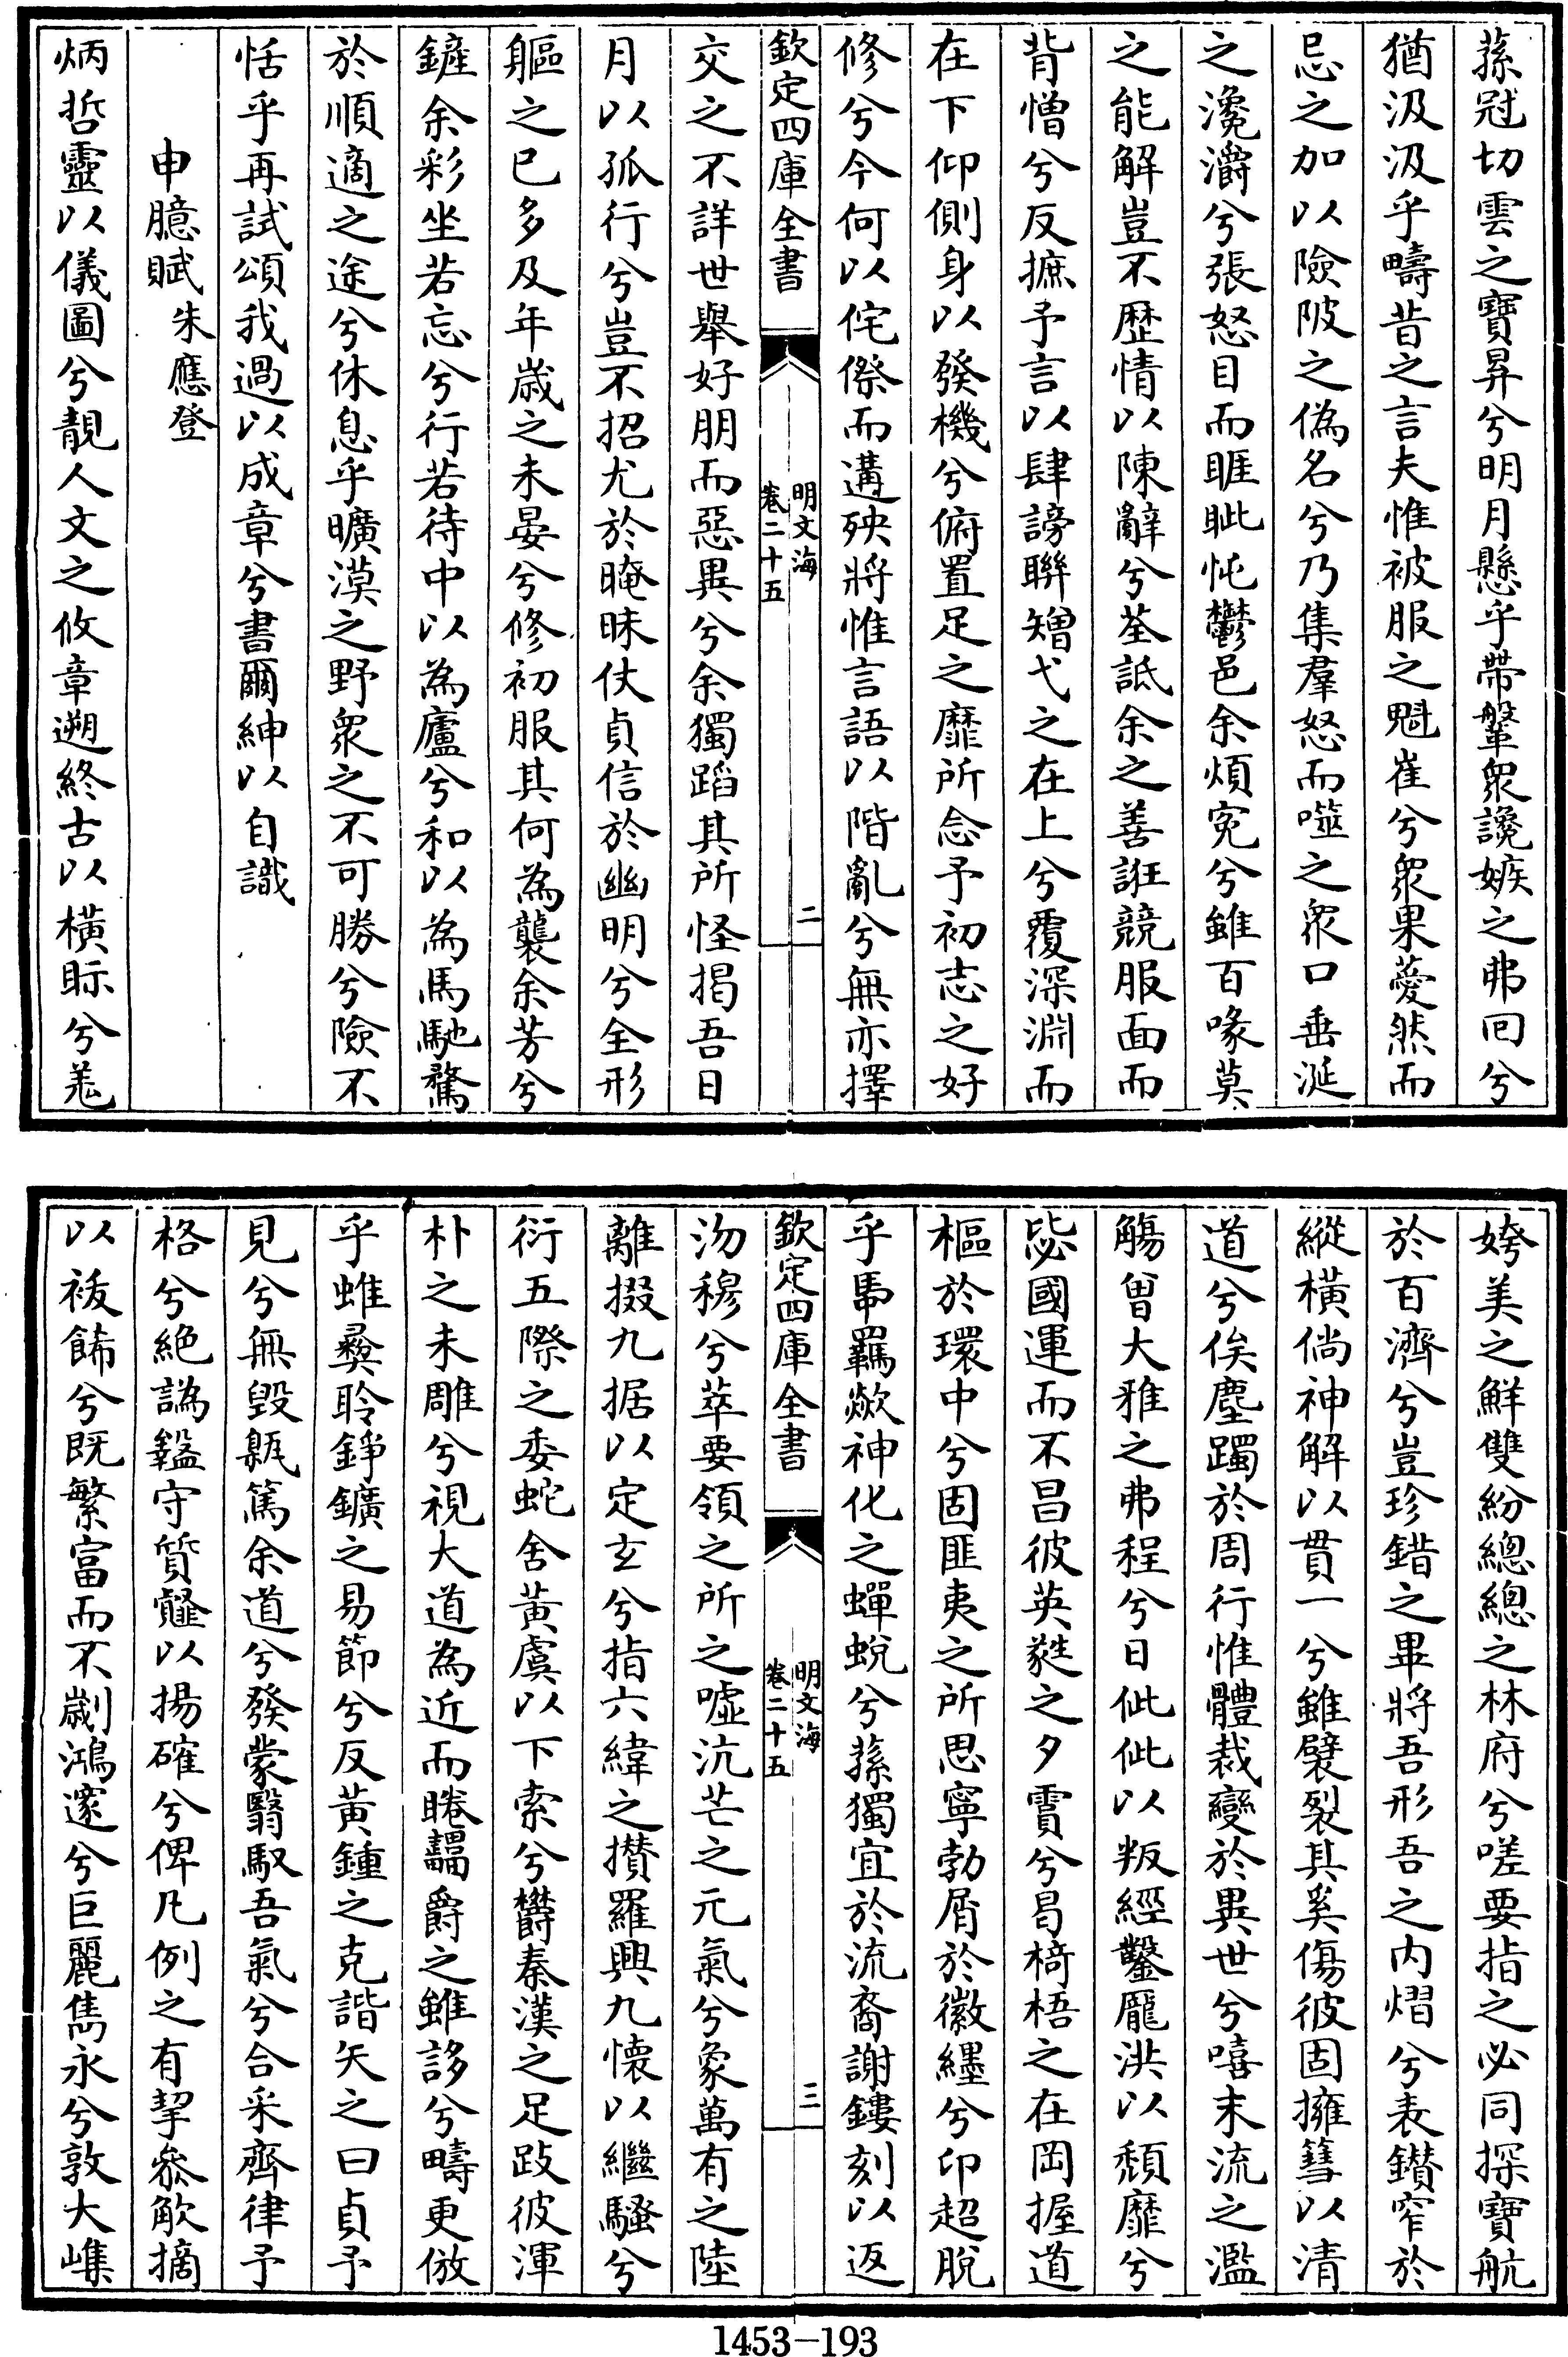 蓀冠切雲之寶昇兮明月懸乎帶鞶衆讒嫉之弗囘兮
猶汲汲乎疇昔之言夫惟被服之魁崔兮衆果薆然而
忌之加以險陂之偽名兮乃集羣怒而噬之衆口垂涎
之瀺灂兮張怒目而睚眦忳鬱邑余煩寃兮雖百喙莫
之能解豈不歴情以陳辭兮荃詆余之善誑競服面而
背憎兮反摭予言以肆謗聯矰弋之在上兮覆深淵而
在下仰側身以發機兮俯置足之靡所念予初志之好
修兮今何以侘傺而遘殃將惟言語以階亂兮無亦擇
欽定四庫全書
明文海
卷二十五
二
交之不詳世舉好朋而惡異兮余獨蹈其所怪揭吾日
月以孤行兮豈不招尤於晻昧仗貞信於幽明兮全形
軀之已多及年歳之未晏兮修初服其何為襲余芳兮
鏟余彩坐若忘兮行若待中以為廬兮和以為馬馳騖
於順適之途兮休息乎曠漠之野衆之不可勝兮險不
恬乎再試頌我過以成章兮書爾紳以自識
申臆賦朱應登
炳哲靈以儀圖兮靚人文之攸章遡終古以横眎兮羌
姱美之鮮雙紛總總之林府兮嗟要指之必同探寶航
於百濟兮豈珍錯之畢將吾形吾之内熠兮表鑚窄於
縱横倘神解以貫一兮雖襞裂其奚傷彼固擁篲以清
道兮俟塵躅於周行惟體裁變於異世兮嘻末流之濫
觴曽大雅之弗程兮日佌佌以叛經鑿龎洪以頽靡兮
毖國運而不昌彼英蕤之夕霣兮曷椅梧之在岡握道
樞於環中兮固匪夷之所思寧勃屑於徽纆兮卬超脫
乎馽羈歘神化之蟬蛻兮蓀獨宜於流裔謝鏤刻以返
欽定四庫全書
明文海
卷二十五
三
沕穆兮萃要領之所之嘘沆芒之元氣兮象萬有之陸
離掇九据以定玄兮指六緯之攅羅興九懐以繼騷兮
衍五際之委蛇舍黃虞以下索兮欝秦漢之足跂彼渾
朴之未雕兮視大道為近而睠讄爵之雖誃兮疇更倣
乎蜼彜聆錚鑛之易節兮反黃鍾之克諧矢之曰貞予
見兮無毁甈篤余道兮發蒙翳馭吾氣兮合采齊律予
格兮絶譌鑑守質龞以揚確兮俾凡例之有挈叅觖摘
以袯餙兮既繁富而不劌鴻邃兮巨麗雋永兮敦大巂
1453-193